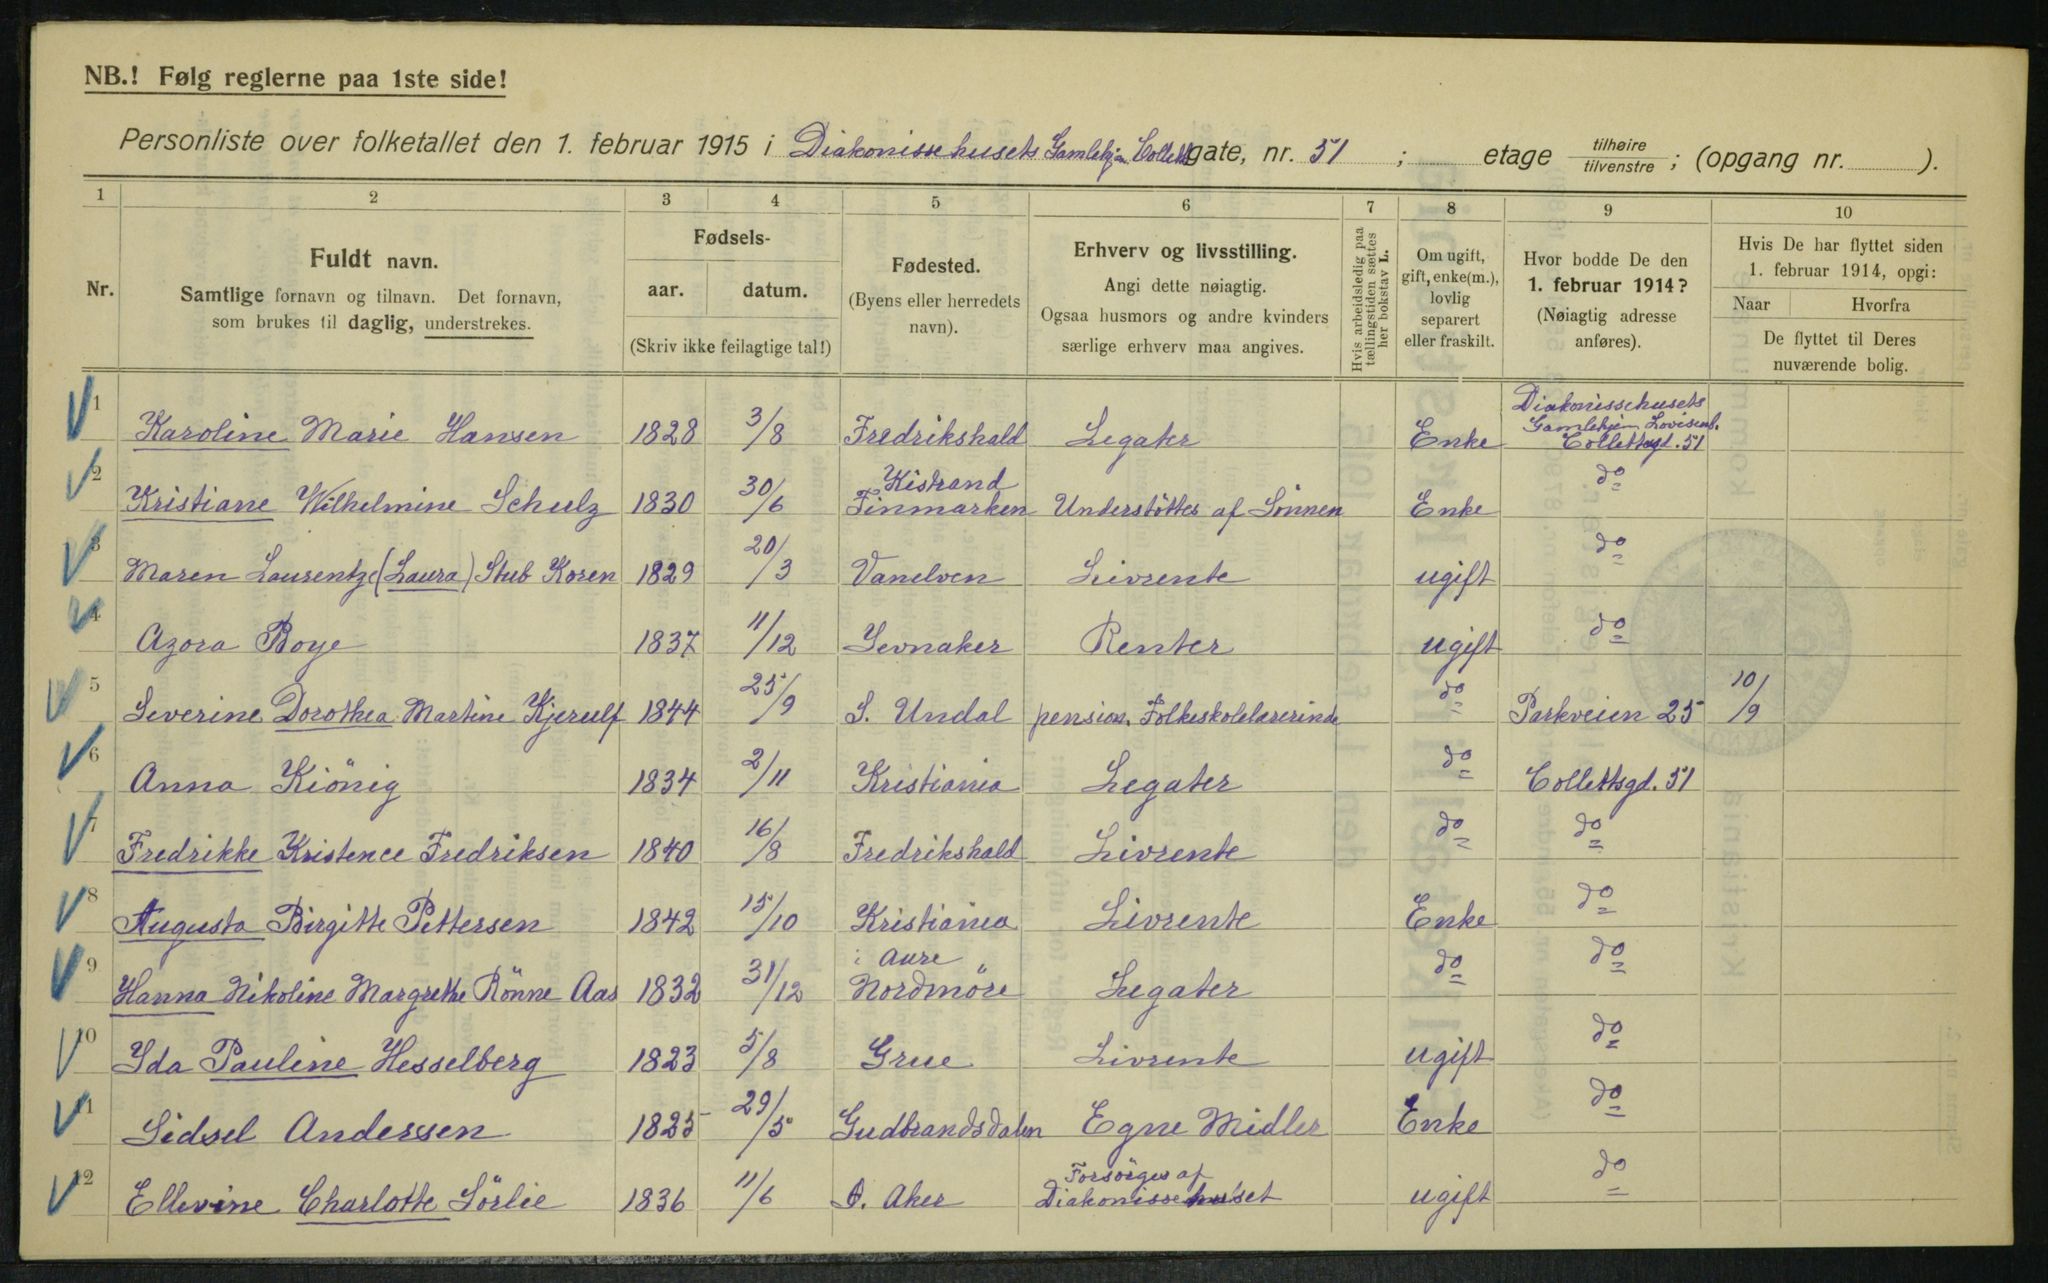 NB.! Følg reglerne paa 1ste side!
Personliste over folketallet den 1. februar 1915 i Diakonissehusets Gamlehjem Colletts gate, nr. 51 ; etage tilhøire / tilvenstre ; (opgang nr. ).
1 2 3 4 5 6 7 8 9 10
Nr.
Fuldt navn.
Samtlige fornavn og tilnavn. Det fornavn,
som brukes til daglig, understrekes.
Fødsels-
aar. datum.
(Skriv ikke feilagtige tal!)
Fødested.
(Byens eller herredets
navn).
Erhverv og livsstilling.
Angi dette nøiagtig.
Ogsaa husmors og andre kvinders
særlige erhverv maa angives.
Hvis arbeidsledig paa
tællingstiden sættes
her bokstav L.
Om ugift,
gift, enke(m.),
lovlig
separert
eller fraskilt.
Hvor bodde De den
1. februar 1914?
(Nøiagtig adresse
anføres).
Hvis De har flyttet siden
1. februar 1914, opgi:
Naar Hvorfra
De flyttet til Deres
nuværende bolig.
1 Karoline Marie Hansen 1828 3/8 Fredrikshald Legater Enke Diakonissehusets Gamlehjem Lovisenb. Collettsgd. 51
2 Kristiane Wilhelmine Schulz 1830 30/6 Kistrand Finmarken Understöttes af Sönnen Enke do
3 Maren Laurentze (Laura) Stub Koren 1829 20/3 Vanelven Livrente ugift do
4 Azora Boye 1837 11/12 Jevnaker Renter ugift do
5 Severine Dorothea Martine Kjerulf 1844 25/9 S. Undal pension. Folkeskolelærerinde do Parkveien 25 10/9
6 Anna Kiönig 1834 2/11 Kristiania Legater do Collettsgd. 51
7 Fredrikke Kristence Fredriksen 1840 16/8 Fredrikshald Livrente do do
8 Augusta Birgitte Pettersen 1842 15/10 Kristiania Livrente Enke do
9 Hanna Nikoline Margrethe Rönne Aas 1832 31/12 i Aure Nordmöre Legater do do
10 Ida Pauline Hesselberg 1823 5/8 Grue Livrente ugift do
11 Sidsel Andersen 1825 29/5 Gudbrandsdalen Egne Midler Enke do
12 Ellevine Charlotte Sörlie 1836 11/6 Ö. Aker Forsörges af Diakonissehuset ugift do